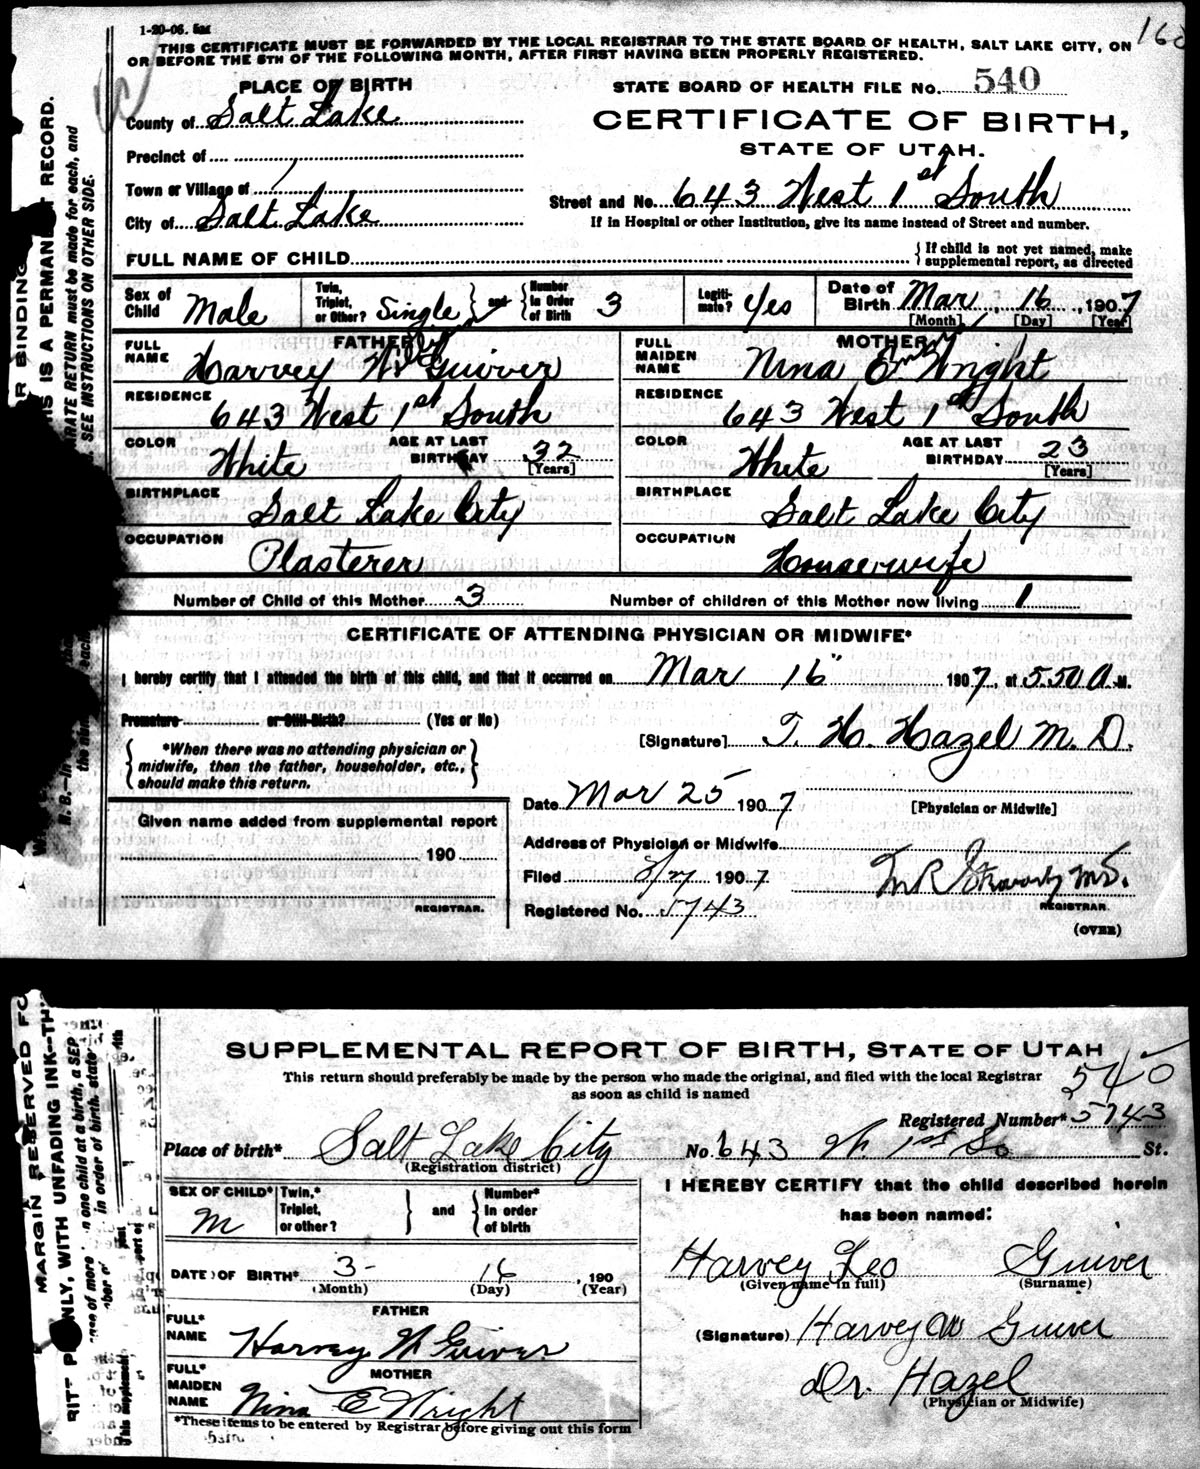 1-20-06. 5m
160
THIS CERTIFICATE MUST BE FORWARDED BY THE LOCAL REGISTRAR TO THE STATE BOARD OF HEALTH, SALT LAKE CITY, ON
OR BEFORE THE 5TH OF THE FOLLOWING MONTH, AFTER FIRST HAVING BEEN PROPERLY REGISTERED.
PLACE OF BIRTH
STATE BOARD OF HEALTH FILE NO. 540
County of Salt Lake
CERTIFICATE OF BIRTH,
STATE OF UTAH.
Precinct of
Town or Village of
Street and No. 643 West 1st South
City of Salt Lake
If in Hospital or other Institution, give its name instead of Street and number.
FULL NAME OF CHILD
{ If child is not yet named, make
supplemental report, as directed
Sex of Child Male
Twin, Triplet, or Other? Single } and { Number in Order of Birth 3
Legitimate? Yes
Date of Birth Mar, 16, 1907
[Month] [Day] [Year]
FATHER
FULL NAME Harvey W. Guiver
MOTHER
FULL MAIDEN NAME Nina E. Wright
RESIDENCE 643 West 1st South
RESIDENCE 643 West 1st South
COLOR White AGE AT LAST BIRTHDAY 32 [Years]
COLOR White AGE AT LAST BIRTHDAY 23 [Years]
BIRTHPLACE Salt Lake City
BIRTHPLACE Salt Lake City
OCCUPATION Plasterer
OCCUPATION Housewife
Number of Child of this Mother 3
Number of children of this Mother now living 1
CERTIFICATE OF ATTENDING PHYSICIAN OR MIDWIFE*
I hereby certify that I attended the birth of this child, and that it occurred on Mar 16" 1907, at 5.50 A.M.
Premature or Still Birth? (Yes or No)
{ *When there was no attending physician or
midwife, then the father, householder, etc.,
should make this return. }
[Signature] T. H. Hazel M. D.
Date Mar 25 1907
[Physician or Midwife]
Given name added from supplemental report
190
REGISTRAR.
Address of Physician or Midwife
Filed 3/27 1907
Registered No. 5743
REGISTRAR.
(OVER)
SUPPLEMENTAL REPORT OF BIRTH, STATE OF UTAH
This return should preferably be made by the person who made the original, and filed with the local Registrar
as soon as child is named
540
Registered Number* 5743
Place of birth* Salt Lake City
(Registration district)
No. 643 W. 1st So St.
SEX OF CHILD* M
Twin,* Triplet, or other? } and { Number* in order of birth
I HEREBY CERTIFY that the child described herein
has been named:
DATE OF BIRTH* 3- 16, 190
(Month) (Day) (Year)
Harvey Leo Guiver
(Given name in full) (Surname)
FATHER
FULL* NAME Harvey W Guiver
(Signature) Harvey W Guiver
MOTHER
FULL* MAIDEN NAME Nina E Wright
Dr. Hazel
(Physician or Midwife)
*These items to be entered by Registrar before giving out this form